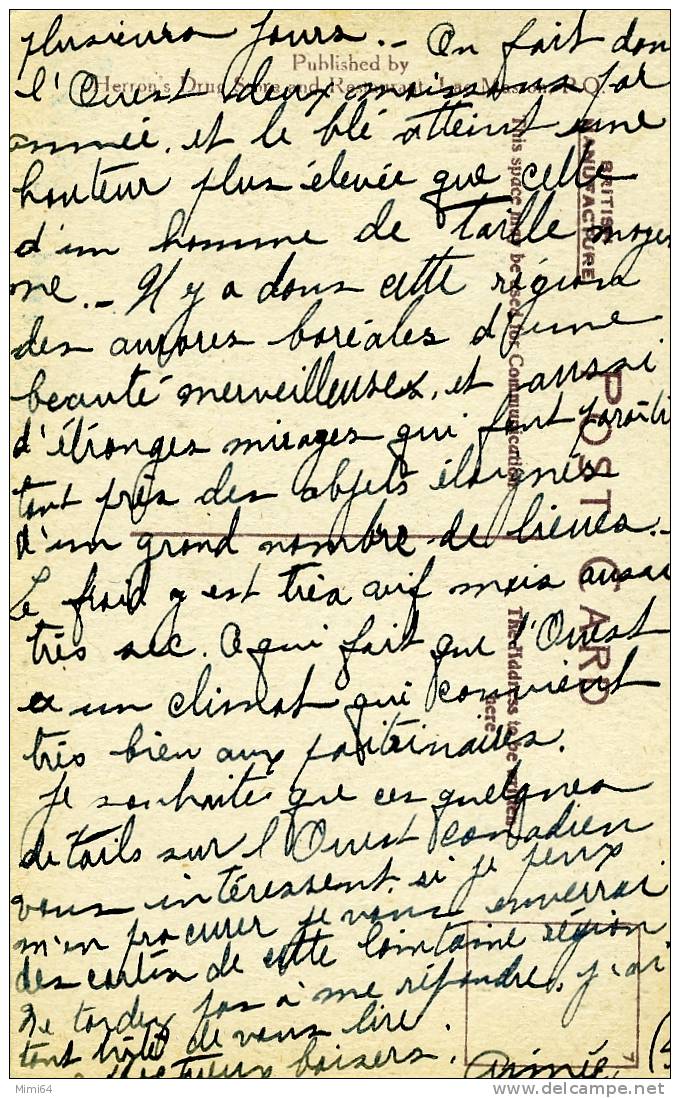 plusieurs jours. - On fait dan
l'Ouest deux moissons par
année, et le blé atteint une
hauteur plus élevée que celle
d'un homme de taille moyen
ne. - Il y a dans cette région
des aurores boréales d'une
beauté merveilleuse, et aussi
d'étranges mirages qui font paraître
tout près des objets éloignés
d'un grand nombre de lieues. -
Le froid y est très vif mais aussi
très sec. Ce qui fait que l'Ouest
a un climat qui convient
très bien aux poitrinaires.
Je souhaite que ces quelques
détails sur l'Ouest canadien
vous intéressent, si je peux
m'en procurer je vous enverrai
des cartes de cette lointaine région
Ne tardez pas à me répondre, j'ai
tant hâte de vous lire.
baisers. Aimée
Published by
Herron's Drug Store and Restaurant, Lac Masson, P.Q.
BRITISH
MANUFACTURE
This space may be used for Communication
POST CARD
The Address to be written
here
Mimi64